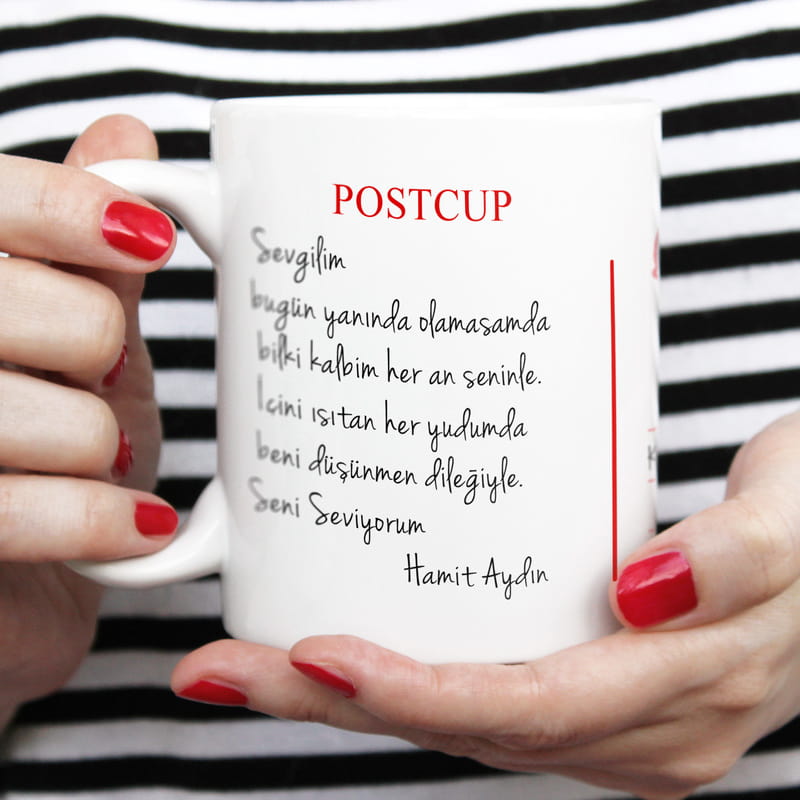 POSTCUP
Sevgilim
bugün yanında olamasamda
bilki kalbim her an seninle.
İçini ısıtan her yudumda
beni düşünmen dileğiyle.
Seni Seviyorum
Hamit Aydın